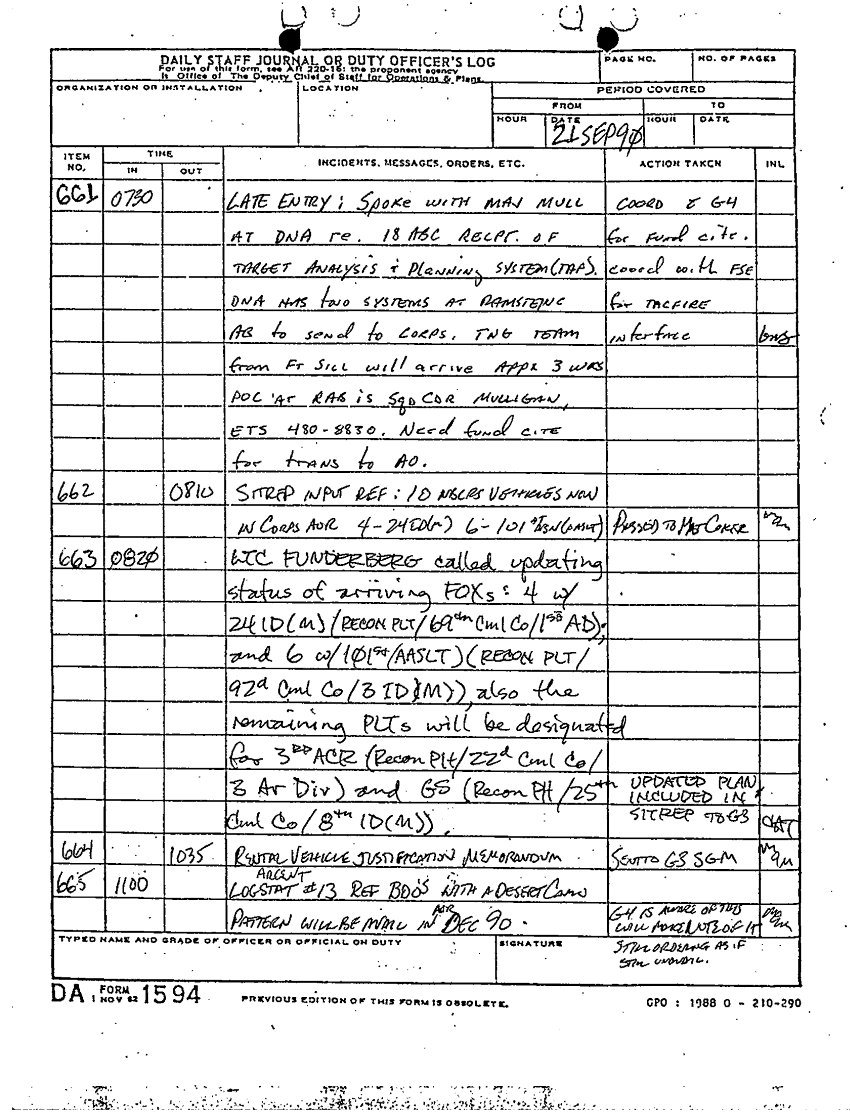 DAILY STAFF JOURNAL OR DUTY OFFICER'S LOG
For use of this form, see AR 220-15; the proponent agency
is Office of The Deputy Chief of Staff for Operations & Plans.
PAGE NO.
NO. OF PAGES
ORGANIZATION OR INSTALLATION
LOCATION
PERIOD COVERED
FROM
TO
HOUR
DATE
HOUR
DATE
21 SEP 90
ITEM NO.
TIME
IN
OUT
INCIDENTS, MESSAGES, ORDERS, ETC.
ACTION TAKEN
INL
661 0730 LATE ENTRY; SPOKE WITH MAJ MULL COORD G4
AT DNA re. 18 ABC RECPT. OF for Fund cite.
TARGET ANALYSIS & Planning SYSTEM (TAP). coord with FSE
DNA HAS two SYSTEMS AT for TACFIRE
AB to send to CORPS. TNG TEAM interface
from FT SILL will arrive APPX 3 WKS
POC AT RAB is SqD CDR MULLIGAN,
ETS 480-8830. Need fund CITE
for trans to AO.
662 0810 SITREP INPUT REF: 10 VEHICLES NOW
IN CORPS AOR 4-24ID(M) 6-101st PASSED TO
663 0820 LTC FUNDERBERG called updating
status of arriving FOXs: 4 w/
24 ID(M)/(RECON PLT/69th Cml Co/1st AD);
and 6 w/101st/AASLT)(RECON PLT/
92d Cml Co/3 ID(M)), also the
remaining PLTs will be designated
for 3RD ACR (Recon Plt/22d Cml Co/
3 Ar Div) and GS (Recon Plt/25th UPDATED PLAN
Cml Co/8th ID(M)). INCLUDED IN
SITREP TO G3
664 1035 RENTAL VEHICLE JUSTIFICATION MEMORANDUM SENT TO G3 SGM
665 1100 ARCENT
LOGSTAT #13 REF BDO'S WITH A DESERT CAMO
PATTERN WILL BE AVAIL IN DEC 90. G4 IS AWARE OF THIS
WILL OF IT
STILL ORDERING AS IF
STILL
TYPED NAME AND GRADE OF OFFICER OR OFFICIAL ON DUTY
SIGNATURE
DA FORM 1 NOV 62 1594
PREVIOUS EDITION OF THIS FORM IS OBSOLETE.
GPO : 1988 O - 210-290